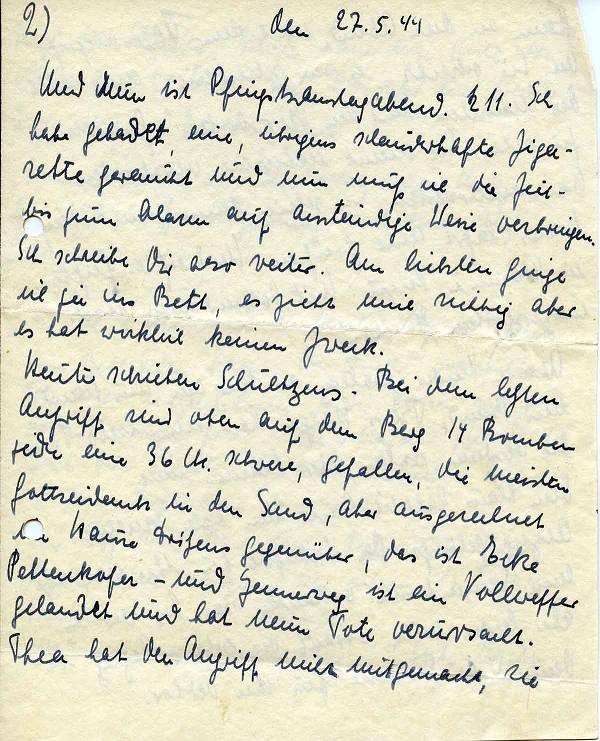 2)
den 27.5.44
Und nun ist Pfingstsamstagabend. ½ 11. Ich
habe gebadet, eine, übrigens schauderhafte Ziga-
rette geraucht und nun muß ich die Zeit
bis zum Alarm auf anständige Weise verbringen.
Ich schreibe Dir also weiter. Am liebsten ginge
ich ja ins Bett, es zieht mich richtig aber
es hat wirklich keinen Zweck.
Heute schrieben Schultzens. Bei dem letzten
Angriff sind oben auf dem Berg 14 Bomben
jede eine 36 schwere, gefallen, die meisten
Gottseidank in den Sand, aber ausgerechnet
im Hause gegenüber, das ist Ecke
Pettenkofer - und ist ein Volltreffer
gelandet und hat neun Tote verursacht.
Thea hat den Angriff nicht mitgemacht, sie